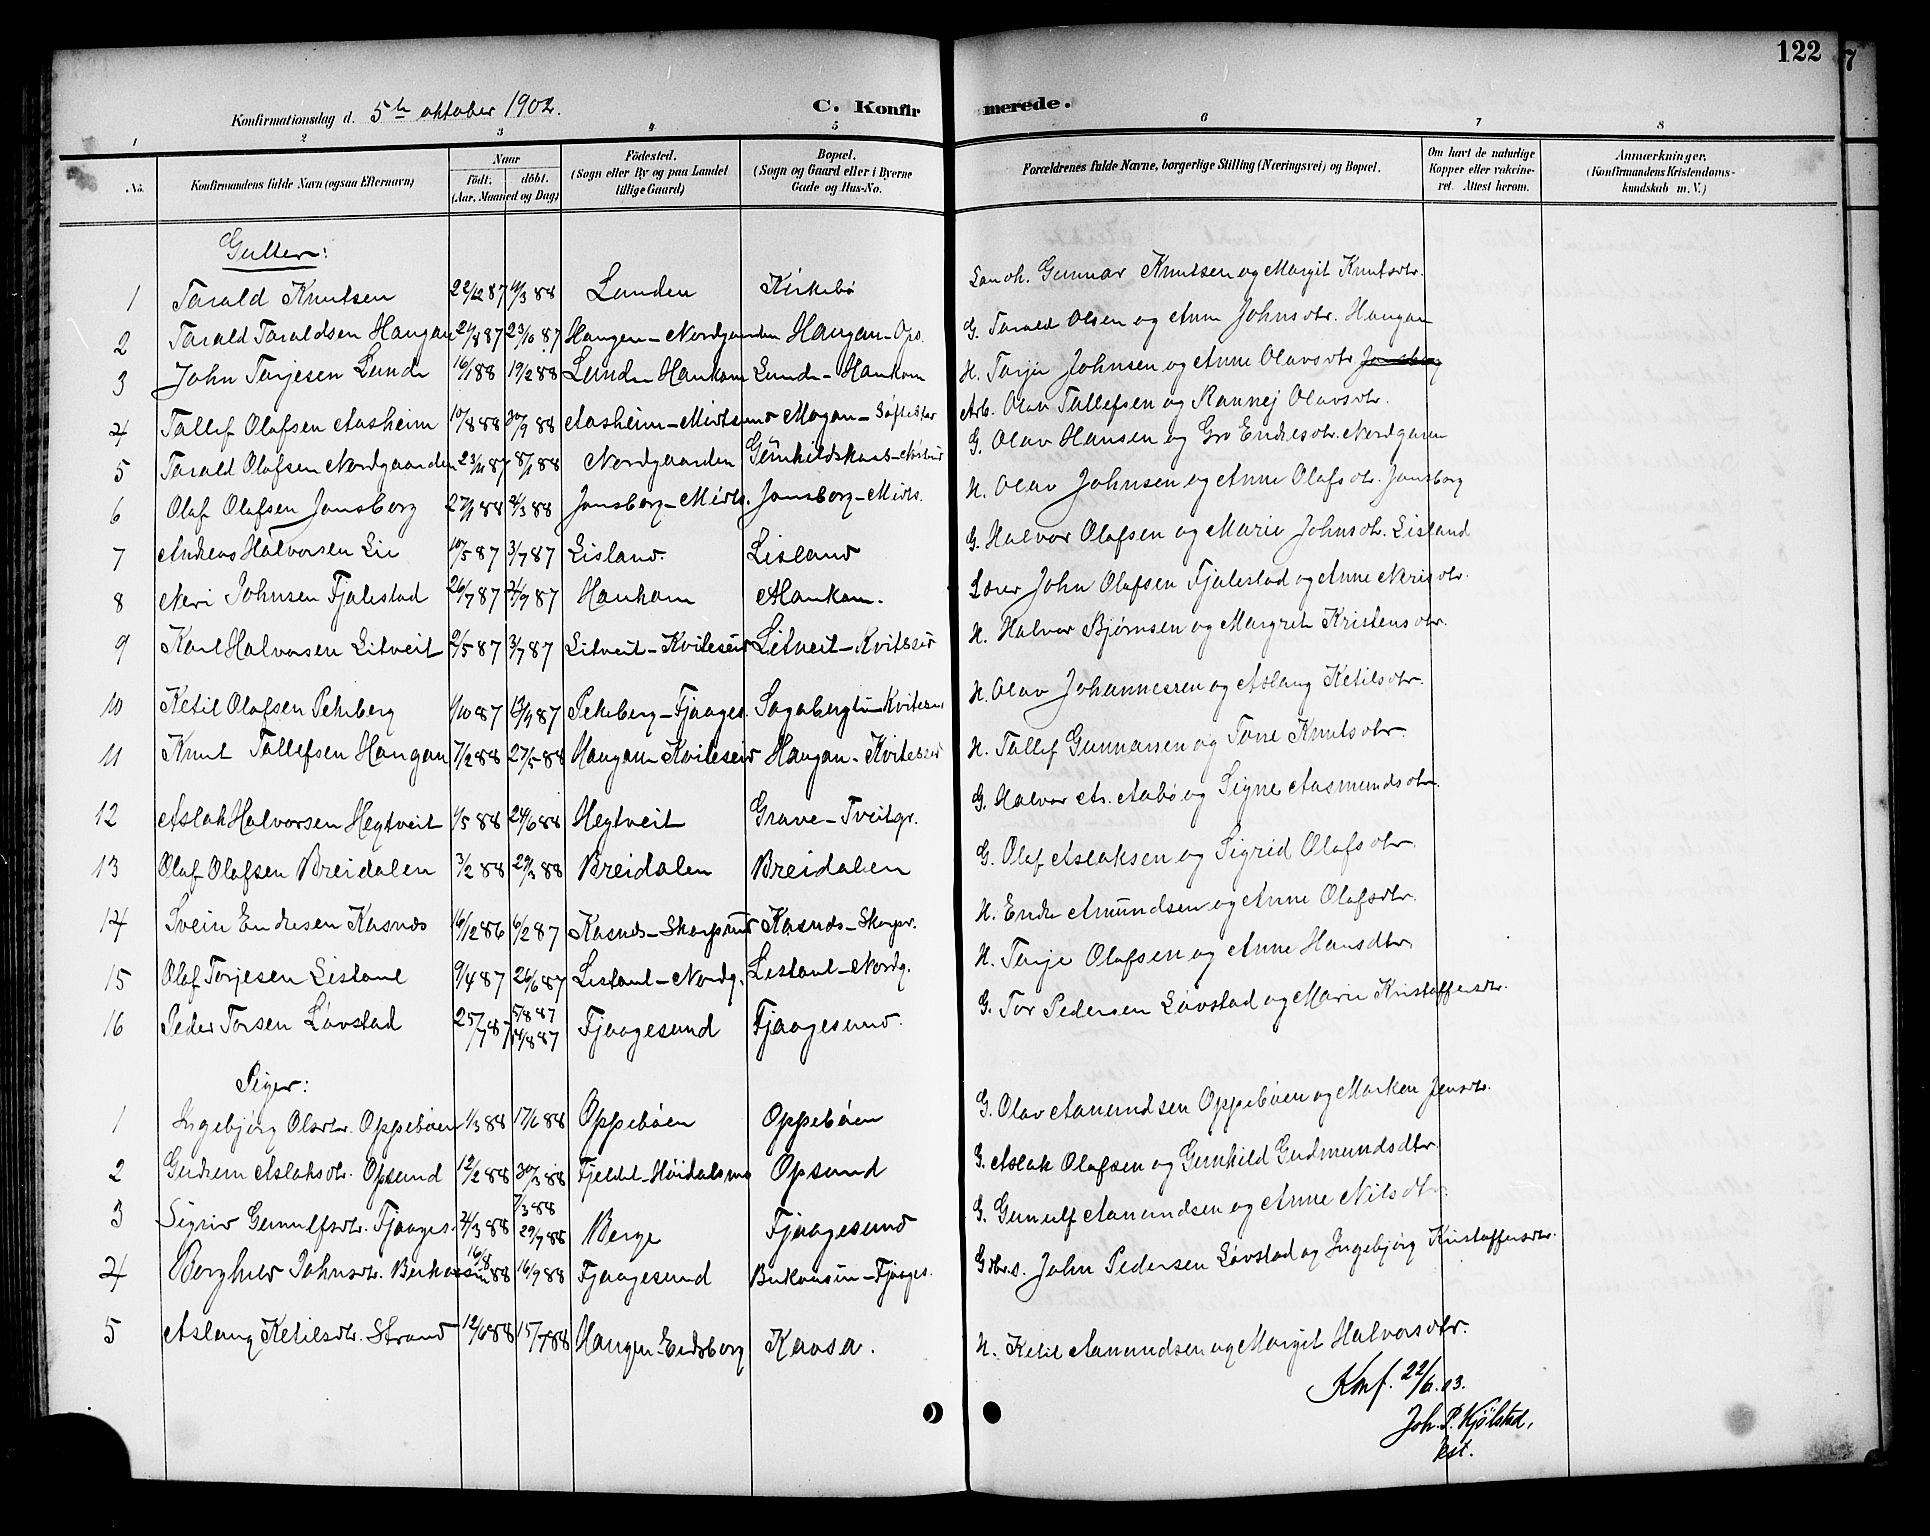 122
Konfirmationsdag d. 5te oktober 1902.
C. Konfirmerede.
1 2 3 4 5 6 7 8
No. Konfirmandens fulde Navn (ogsaa Efternavn) Naar Födt, döbt. (Aar, Maaned og Dag) Födested. (Sogn eller By og paa Landet tillige Gaard) Bopæl. (Sogn og Gaard eller i Byerne Gade og Hus-No. Forældrenes fulde Navne, borgerlige Stilling (Næringsvei) og Bopæl. Om havt de naturlige Kopper eller vakcineret. Attest herom. Anmærkninger. (Konfirmandens Kristendomskundskab m. V.)
Gutter:
1 Tarald Knutsen 22/12 87 4/3 88 Lunden Kirkebø Landh. Gunnar Knutsen og Margit Knutsdtr.
2 Tarald Taraldsen Haugan 21/8 87 23/10 87 Haugen-Nordgaarden Haugan-Ops. G. Tarald Olsen og Anne Johnsdtr. Haugan
3 John Tarjesen Lunde 16/1 88 19/2 88 Lunde Haukom Lunde-Haukom H. Tarje Johnsen og Anne Olavsdtr. Jonsborg
4 Tallef Olafsen Aasheim 10/8 88 30/9 88 Aasheim-Midtsund Mogan- Arb. Olav Tallefsen og Rannej Olavsdtr.
5 Tarald Olafsen Nordgaarden 23/11 87 8/1 88 Nordgaarden G. Olav Hansen og Gro Endresdtr. Nordgaren
6 Olaf Olafsen Jonsborg 27/1 88 4/3 88 Jonsborg-Midts. Jonsborg-Midts. H. Olav Johnsen og Anne Olafsdtr. Jonsborg
7 Andreas Halvorsen Lie 10/5 87 3/7 87 Lisland. Lisland G. Halvor Olafsen og Marie Johnsdtr. Lisland
8 Neri Johnsen Fjalestad 26/7 87 4/9 87 Haukom Haukom. Lærer John Olafsen Fjalestad og Anne Nerisdtr.
9 Karl Halvorsen Litveit 9/5 87 3/7 87 Litveit-Kviteseid Litveit-Kviteseid H. Halvor Bjørnsen og Margret Kristensdtr.
10 Ketil Olafsen Pekeberg 1/10 87 13/11 87 Pekeberg-Fjaages. Sagabergli-Kvitese. H. Olav Johannessen og Aslaug Ketilsdtr.
11 Knut Tallefsen Haugan 7/2 88 27/5 88 Haugan Kviteseid Haugan-Kviteseid H. Tallef Gunnarsen og Tone Knutsdtr.
12 Aslak Halvorsen Hegtveit 1/5 88 24/6 88 Hegtveit Grave-Tveitgr. G. Halvor A. Aabø og Signe Aasmundsdtr.
13 Olaf Olafsen Breidalen 3/2 88 29/3 88 Breidalen Breidalen G. Olaf Aslaksen og Sigrid Olafsdtr.
14 Svein Endresen Kasnes 16/12 86 6/2 87 Kasnes-Skarpsnut Kasnes-Skarpsn. H. Endre Amundsen og Anne Olafsdtr.
15 Olaf Torjesen Lisland 9/4 87 26/6 87 Lisland-Nordg. Lisland-Nordg. H. Tarje Olafsen og Anne Hansdtr.
16 Peder Torsen Løvstad 25/7 87 5/8 87 14/8 87 Fjaagesund Fjaagesund. G. Tor Pedersen Løvstad og Marie Kristoffersdtr.
Piger:
1 Ingebjørg Olsdtr. Oppebøen 1/3 88 17/6 88 Oppebøen Oppebøen G. Olav Aamundsen Oppebøen og Marken Jensdtr.
2 Gudrun Aslaksdtr. Opsund 12/2 88 30/3 88 Fjeldet-Høidalsmo Opsund G. Aslak Olafsen og Gunhild Gudmundsdtr.
3 Sigrid Gunulfsdtr. Fjaages. 4/3 88 7/3 88 29/7 88 Berge Fjaagesund G. Gunulf Aamundsen og Anne Nilsdtr.
4 Borghild Johnsdtr. 16/8 88 16/9 88 Fjaagesund Fjaages. Gbr.s. John Pedersen Løvstad og Ingebjørg Kristoffersdtr.
5 Aslaug Ketilsdtr. Strand 12/6 88 15/7 88 Haugen-Eidsborg Kaasa. H. Ketil Aamundsen og Margit Halvorsdtr.
Konf. 22/6. 03.
Joh. P. Kjølstad,
kst.